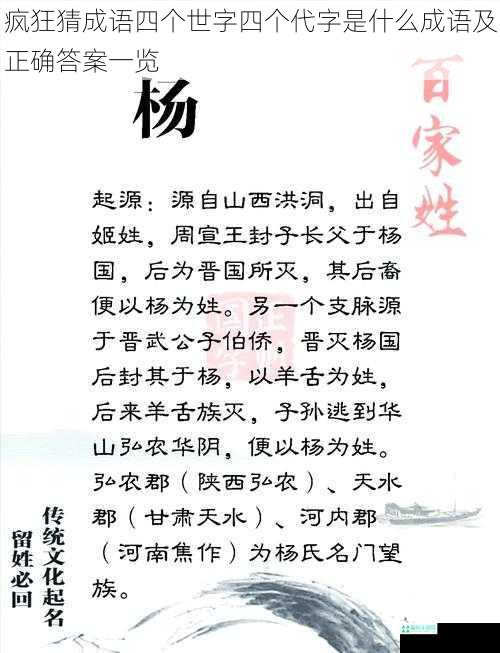 疯狂猜成语四个世字四个代字是什么成语及
正确答案一览
杨
百家姓
起源：源自山西洪洞，出自
姬姓，周宣王封子长父于杨
国，后为晋国所灭，其后裔
便以杨为姓。另一个支脉源
于晋武公子伯侨，晋灭杨国
后封其于杨，以羊舌为姓，
后来羊舌族灭，子孙逃到华
山弘农华阴，便以杨为姓。
弘农郡（陕西弘农）、天水
郡（甘肃天水）、河内郡
（河南焦作）为杨氏名门望
族。
传统文化起名
留姓必回